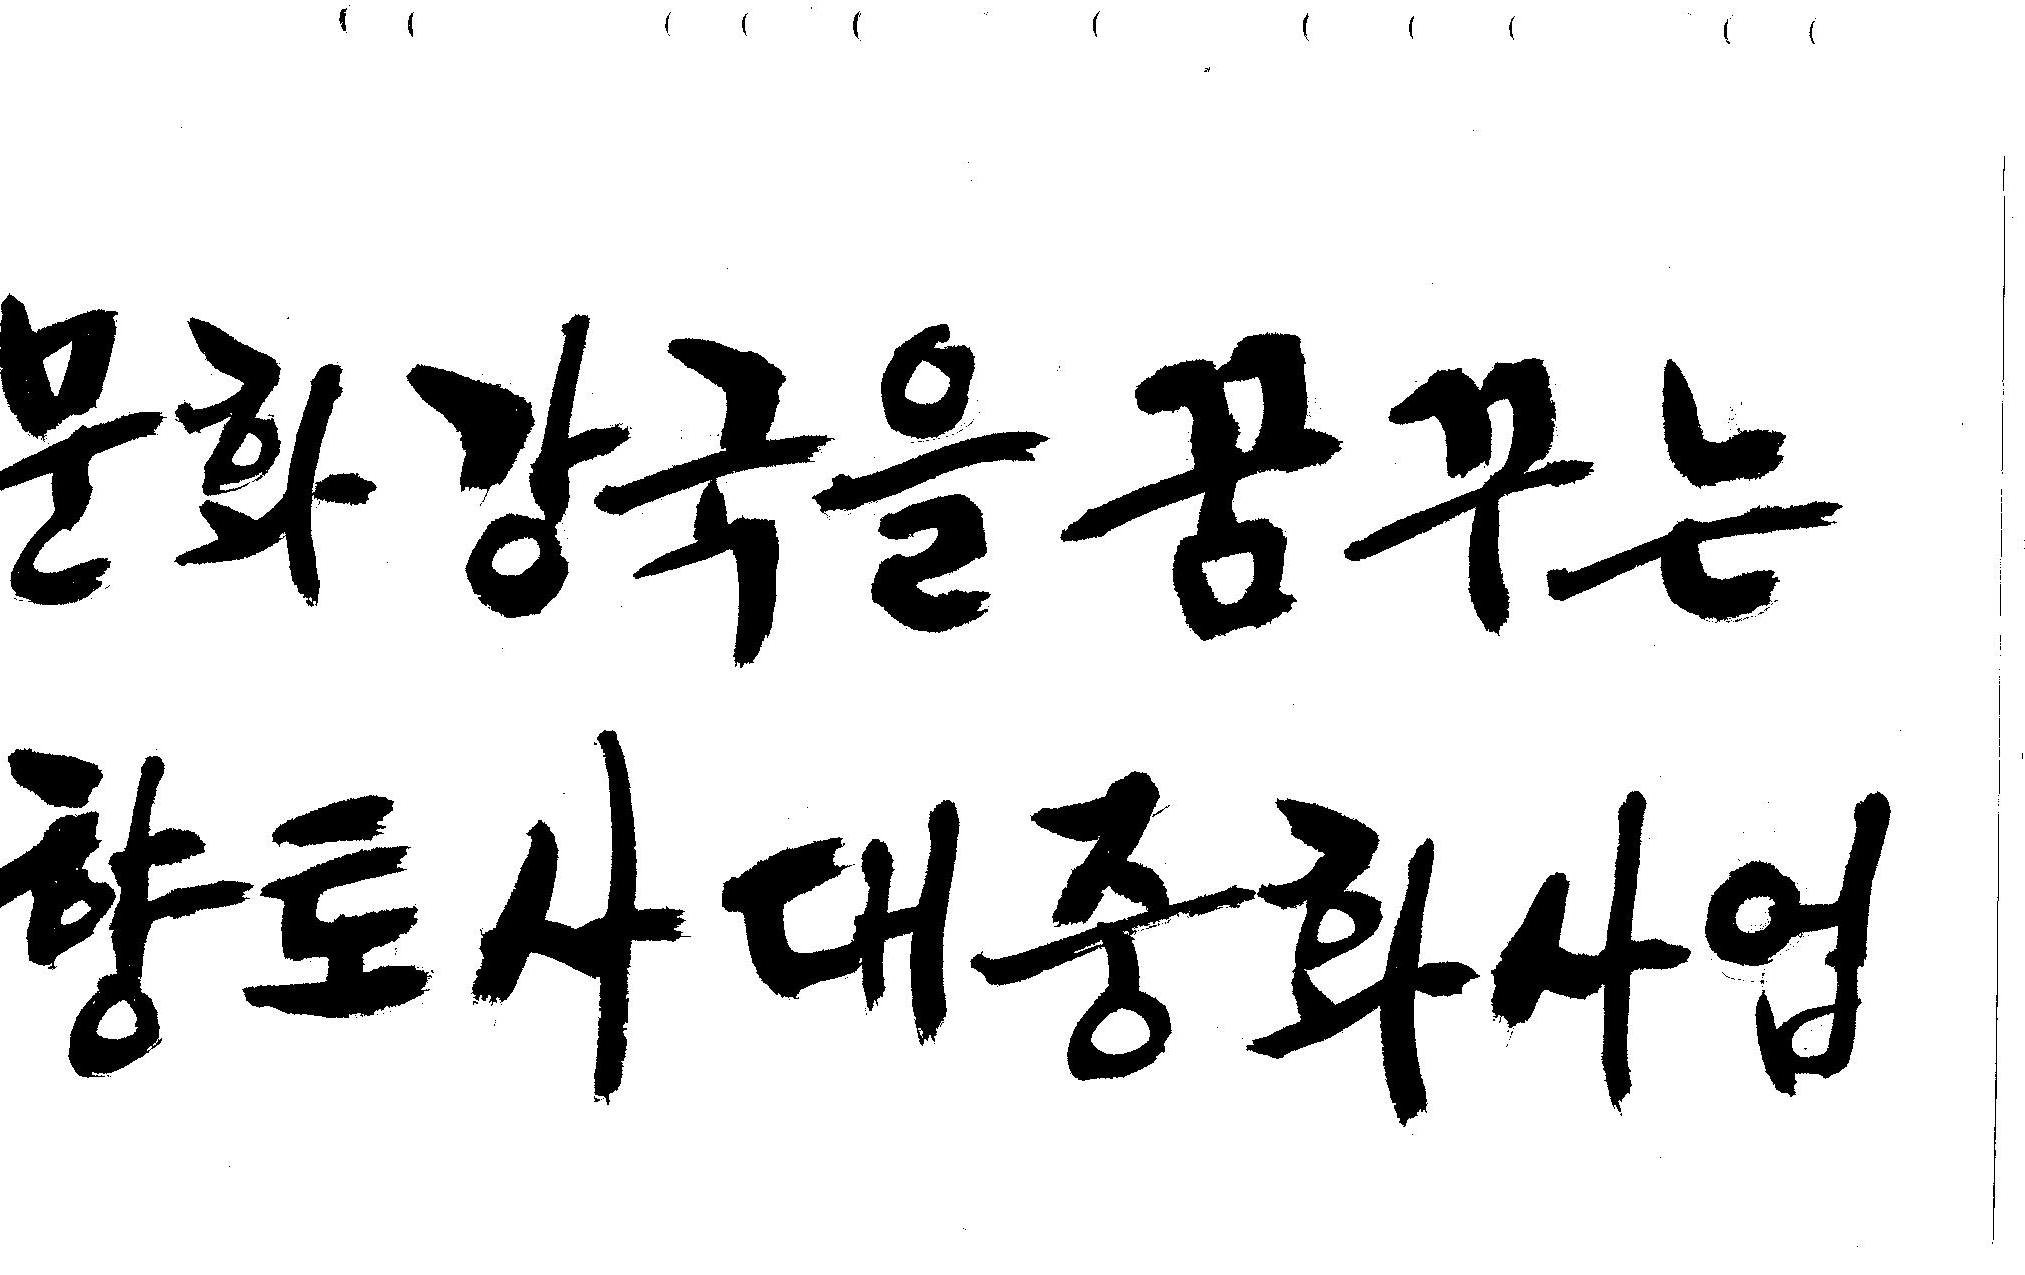 문화강국을 꿈꾸는
향토사 대중화사업